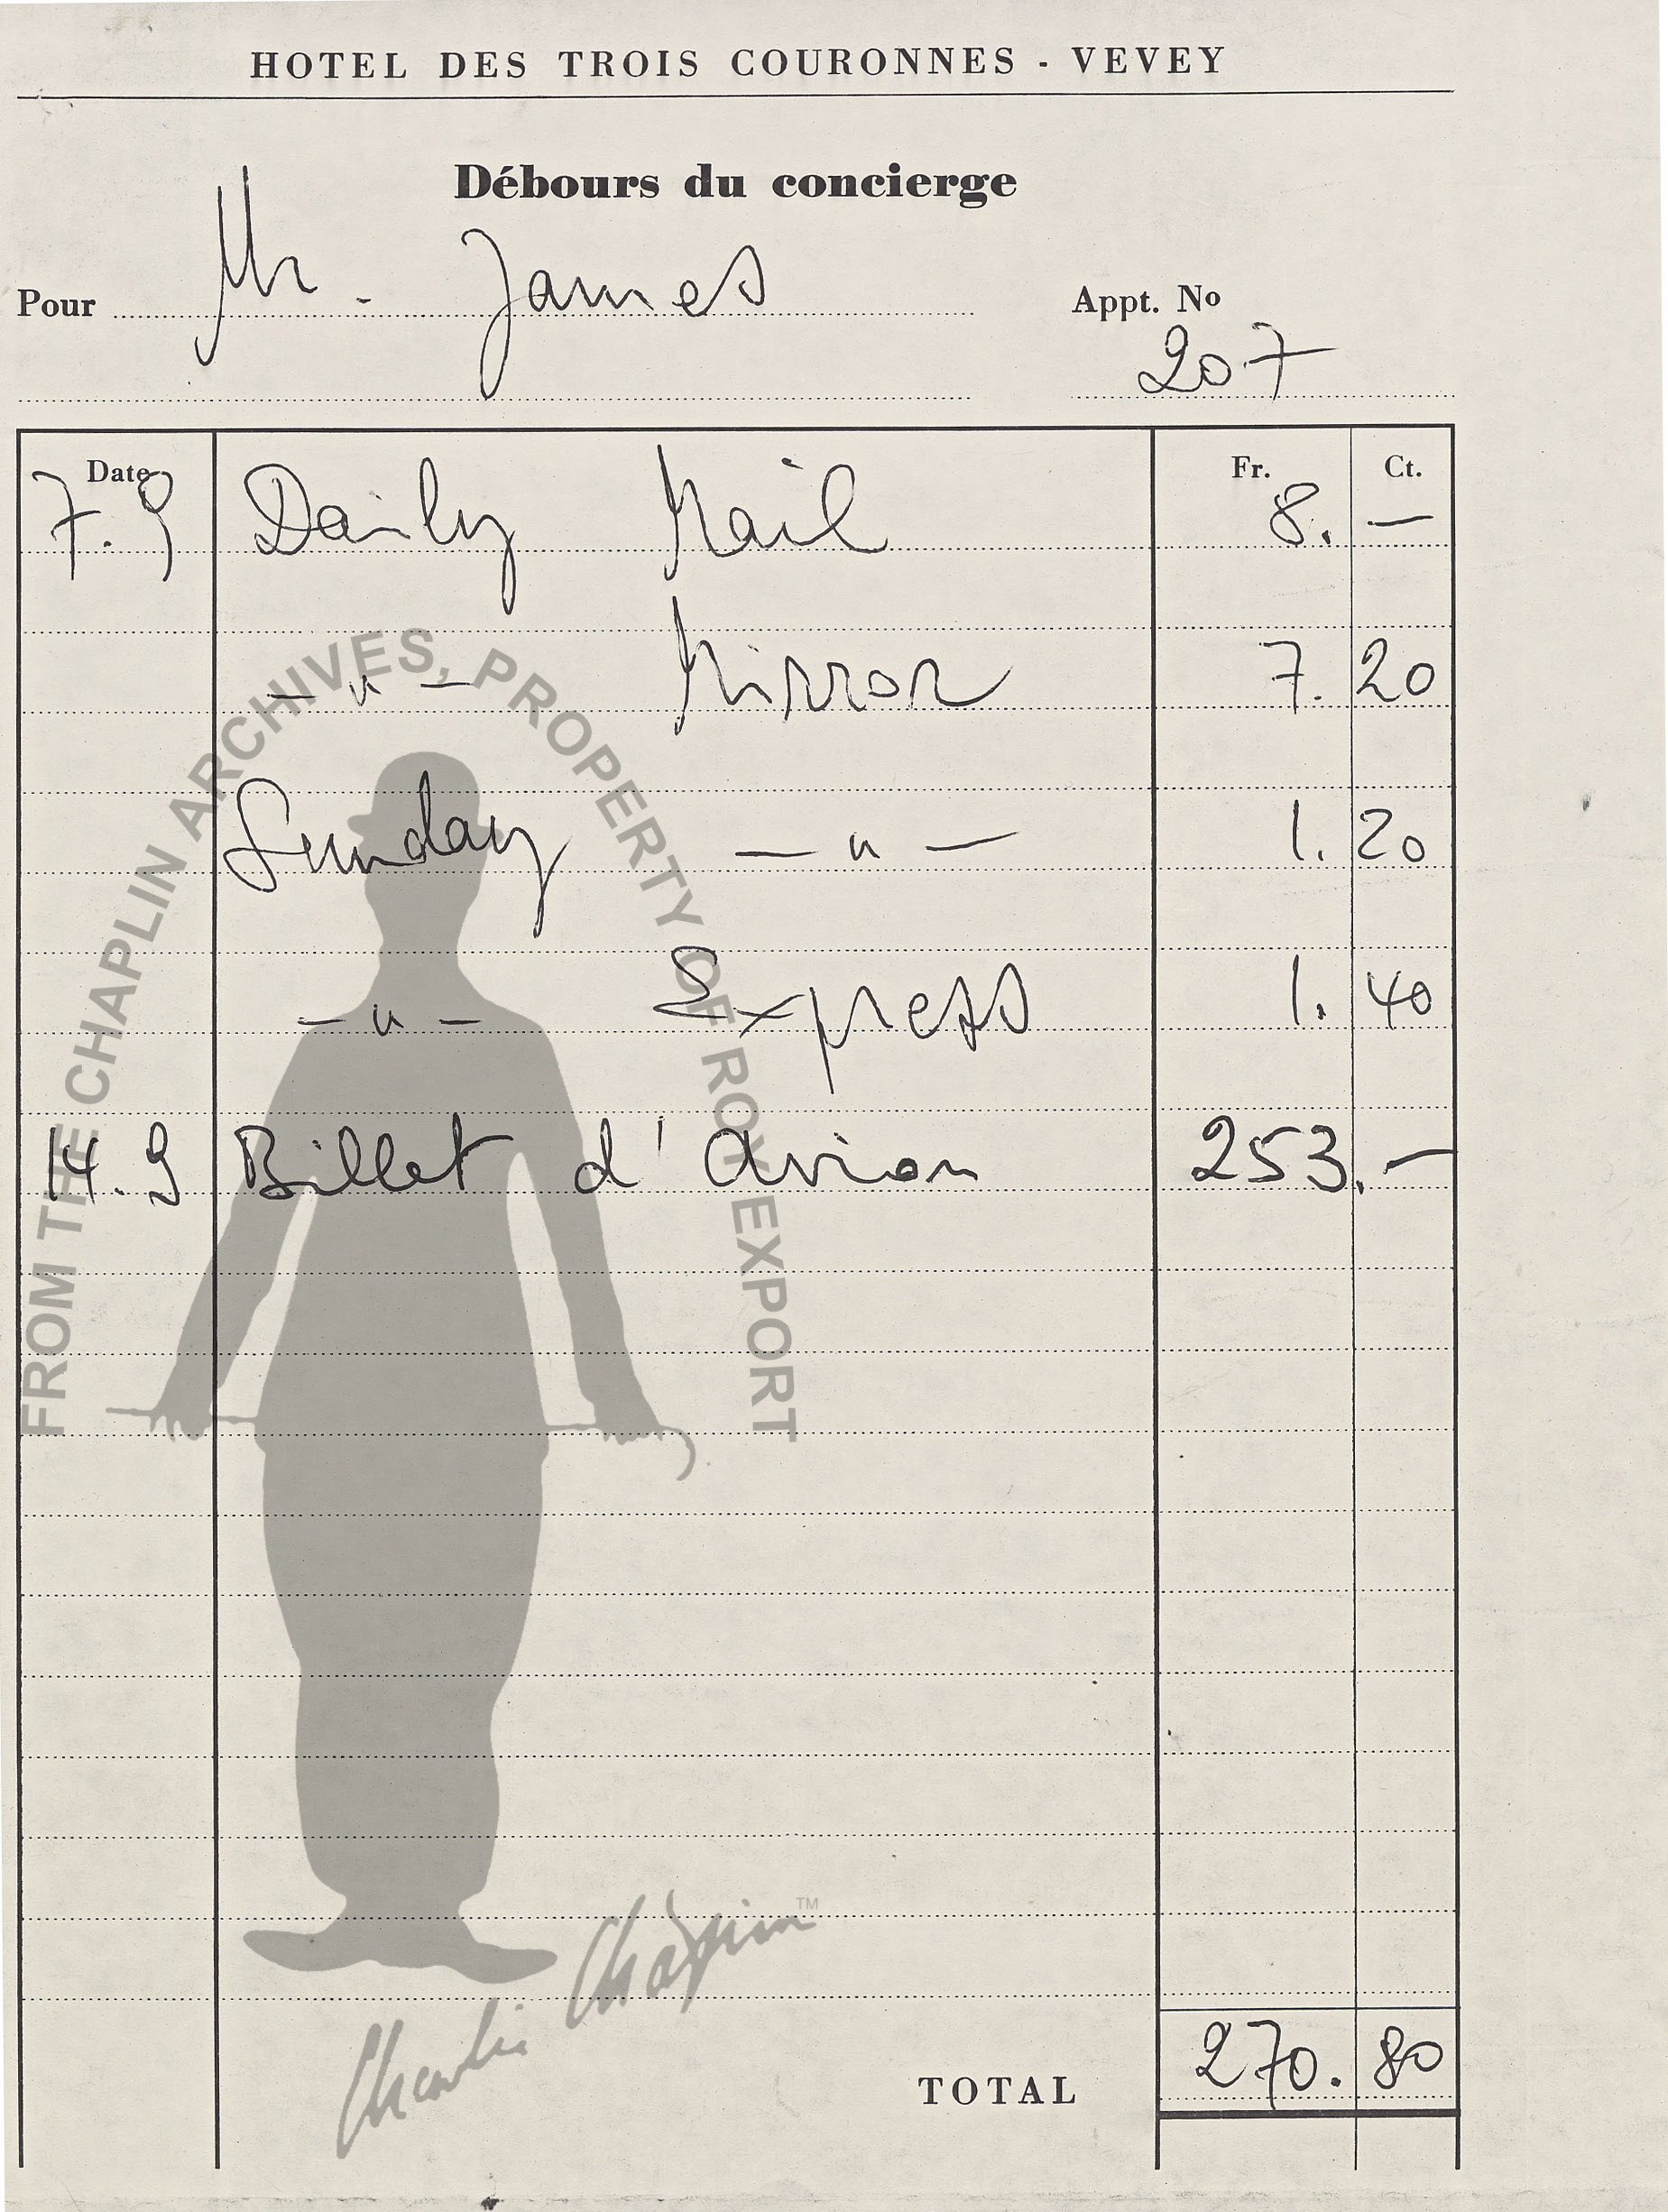 HOTEL DES TROIS COURONNES - VEVEY
Débours du concierge
Pour Mr. James
Appt. No
207
Date Fr. Ct.
7.9 Daily Mail 8. —
— " — Mirror 7. 20
Sunday — " — 1. 20
— " — Express 1. 40
14.9 Billet d'Avion 253. —
TOTAL 270. 80
FROM THE CHAPLIN ARCHIVES, PROPERTY OF ROY EXPORT
Charlie Chaplin™